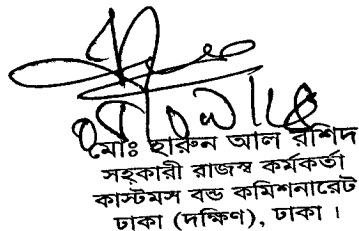 মোঃ হারুন আল রশিদ
সহকারী রাজস্ব কর্মকর্তা
কাস্টমস বন্ড কমিশনারেট
ঢাকা (দক্ষিণ), ঢাকা ।